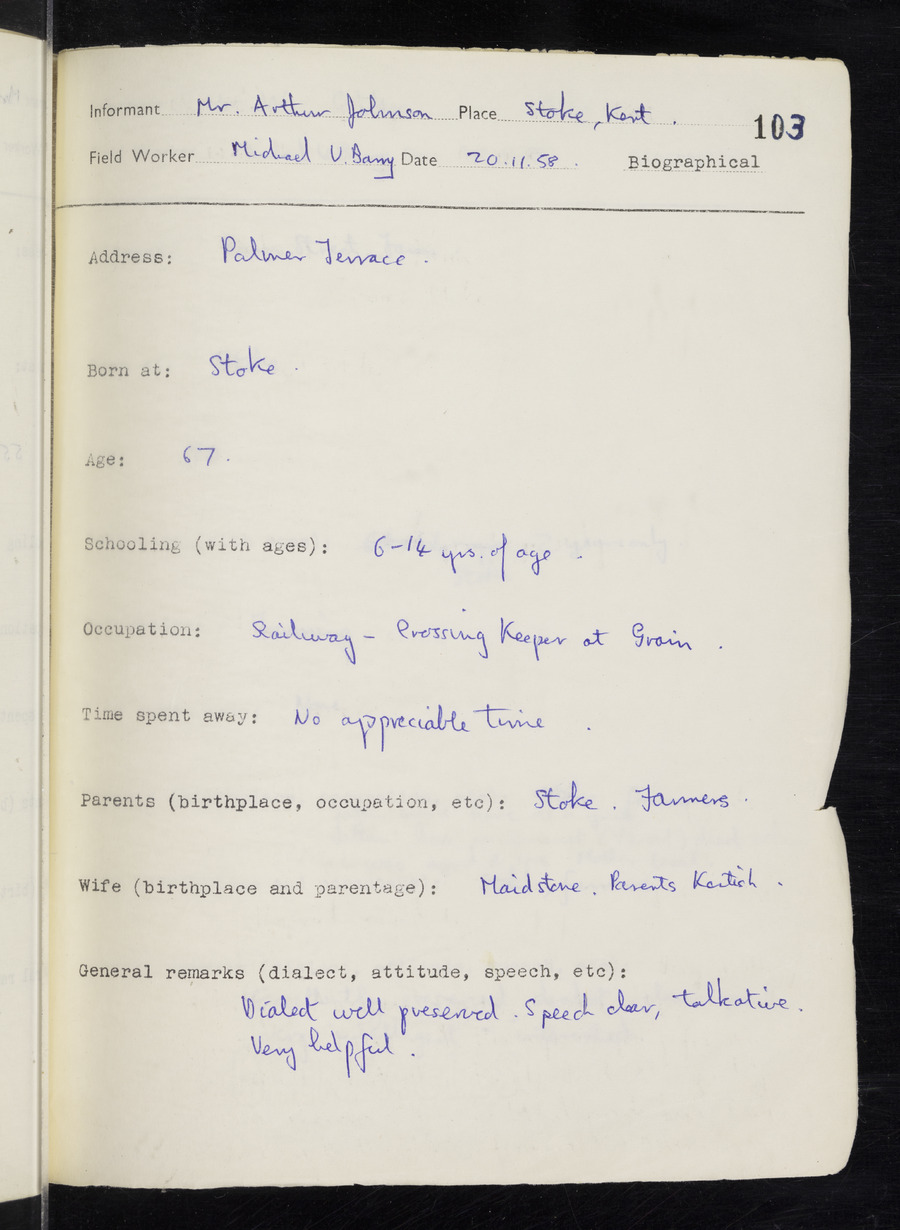 Informant Mr. Arthur Johnson Place Stoke, Kent.
103
Field Worker Michael V. Barry Date 20.11.58. Biographical
Address: Palmer Terrace.
Born at: Stoke.
Age: 67.
Schooling (with ages): 6-14 yrs. of age.
Occupation: Railway - Crossing Keeper at Grain.
Time spent away: No appreciable time.
Parents (birthplace, occupation, etc): Stoke. Farmers.
Wife (birthplace and parentage): Maidstone. Parents Kentish.
General remarks (dialect, attitude, speech, etc):
Dialect well preserved. Speech clear, talkative.
Very helpful.